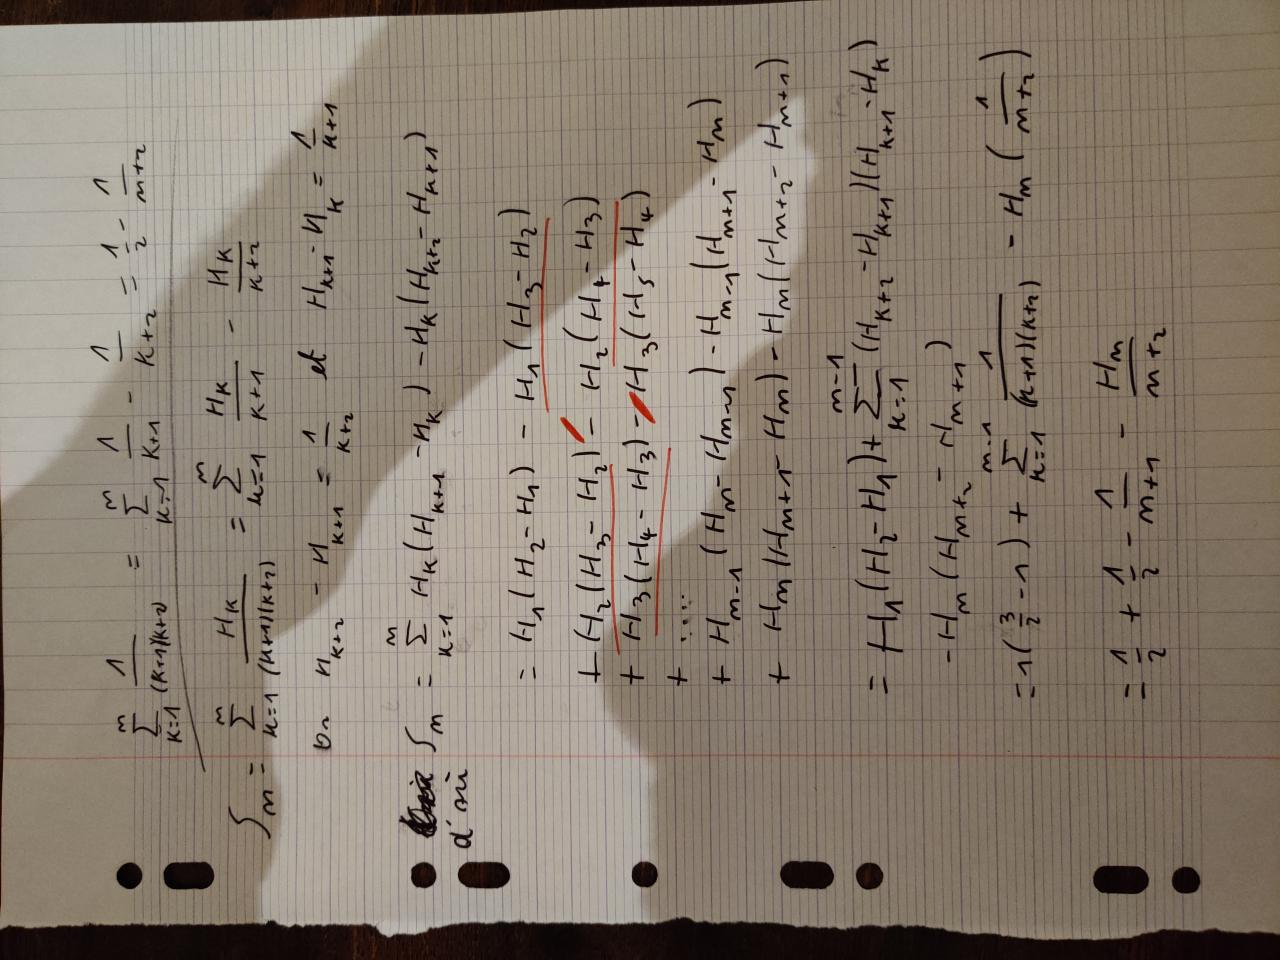 \sum_{k=1}^{n} \frac{1}{(k+1)(k+2)} = \sum_{k=1}^{n} \frac{1}{k+1} - \frac{1}{k+2} = \frac{1}{2} - \frac{1}{n+2}
S_n = \sum_{k=1}^{n} \frac{H_k}{(k+1)(k+2)} = \sum_{k=1}^{n} \frac{H_k}{k+1} - \frac{H_k}{k+2}
or H_{k+2} - H_{k+1} = \frac{1}{k+2} et H_{k+1} - H_k = \frac{1}{k+1}
d'où S_n = \sum_{k=1}^{n} H_k (H_{k+1} - H_k) - H_k (H_{k+2} - H_{k+1})
= H_1 (H_2 - H_1) - H_1 (H_3 - H_2)
+ H_2 (H_3 - H_2) - H_2 (H_4 - H_3)
+ H_3 (H_4 - H_3) - H_3 (H_5 - H_4)
+ ....
+ H_{n-1} (H_n - H_{n-1}) - H_{n-1} (H_{n+1} - H_n)
+ H_n (H_{n+1} - H_n) - H_n (H_{n+2} - H_{n+1})
= H_1 (H_2 - H_1) + \sum_{k=1}^{n-1} (H_{k+2} - H_{k+1})(H_{k+1} - H_k)
- H_n (H_{n+2} - H_{n+1})
= 1 (\frac{3}{2} - 1) + \sum_{k=1}^{n-1} \frac{1}{(k+1)(k+2)} - H_n (\frac{1}{n+2})
= \frac{1}{2} + \frac{1}{2} - \frac{1}{n+1} - \frac{H_n}{n+2}